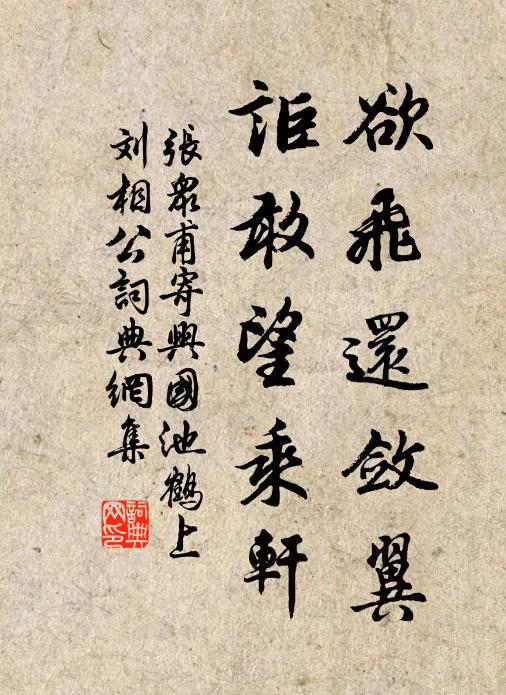 欲飛還斂翼
詎敢望乘軒
張眾甫寄興國池鶴上
刘相公詞典網集
詞典網印